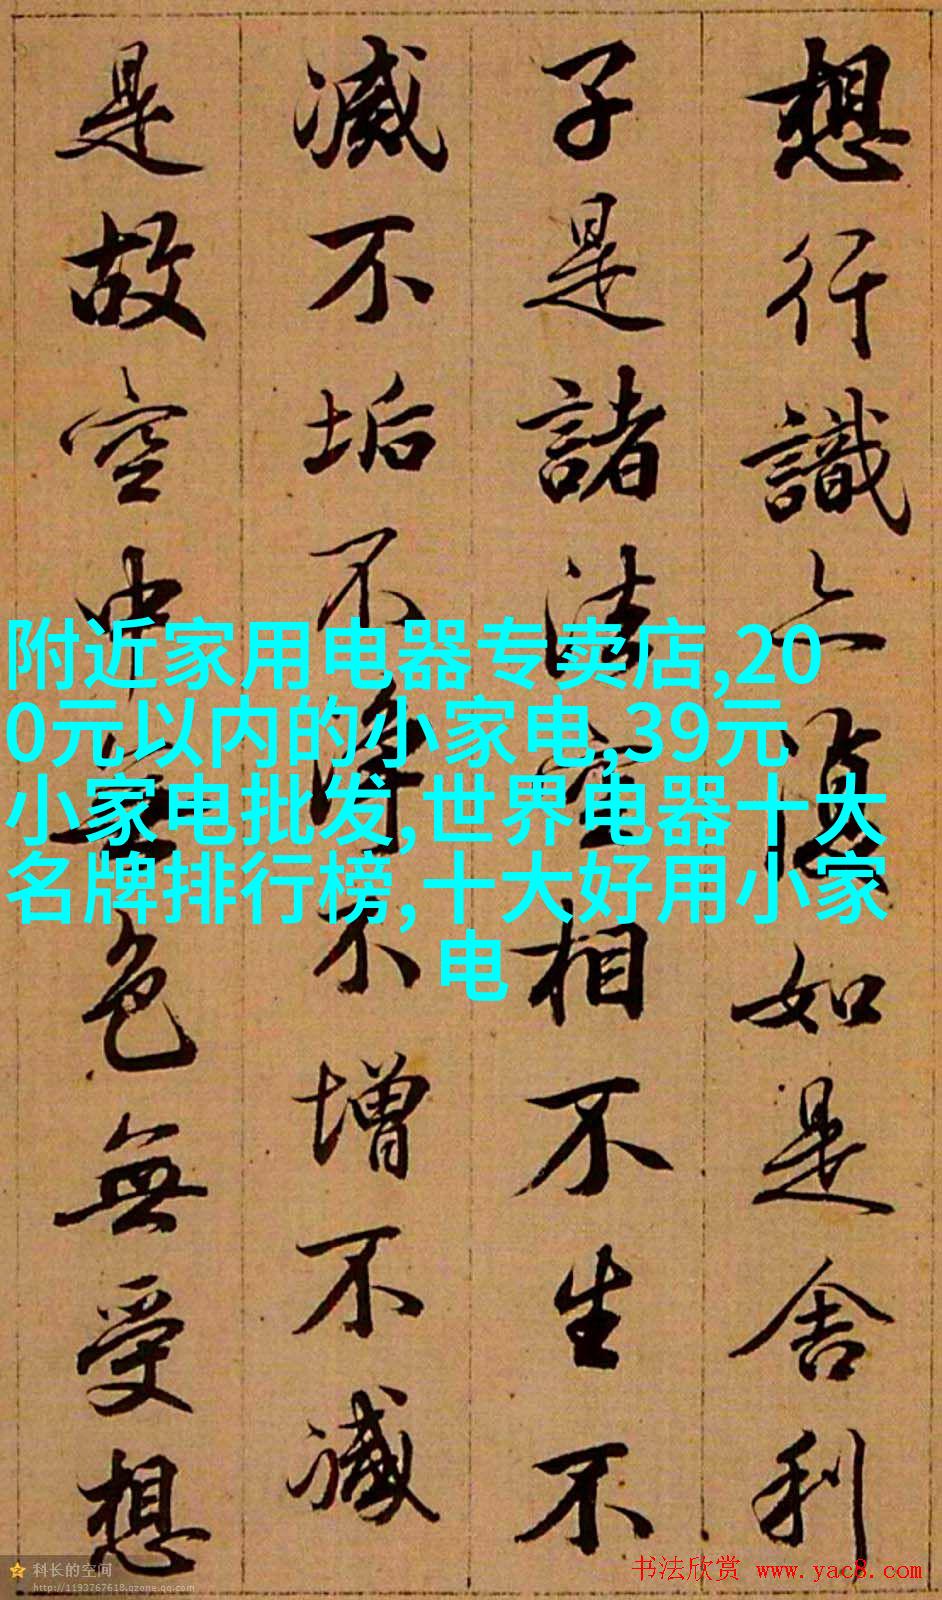 想行識亦復如是舍利
子是諸法空相不生不
滅不垢不淨不增不減
是故空中無色無受想
附近家用电器专卖店,20
0元以内的小家电,39元
小家电批发,世界电器十大
名牌排行榜,十大好用小家
电
科长的空间
http://1193767618.qzone.qq.com
书法欣赏 www.yac8.com